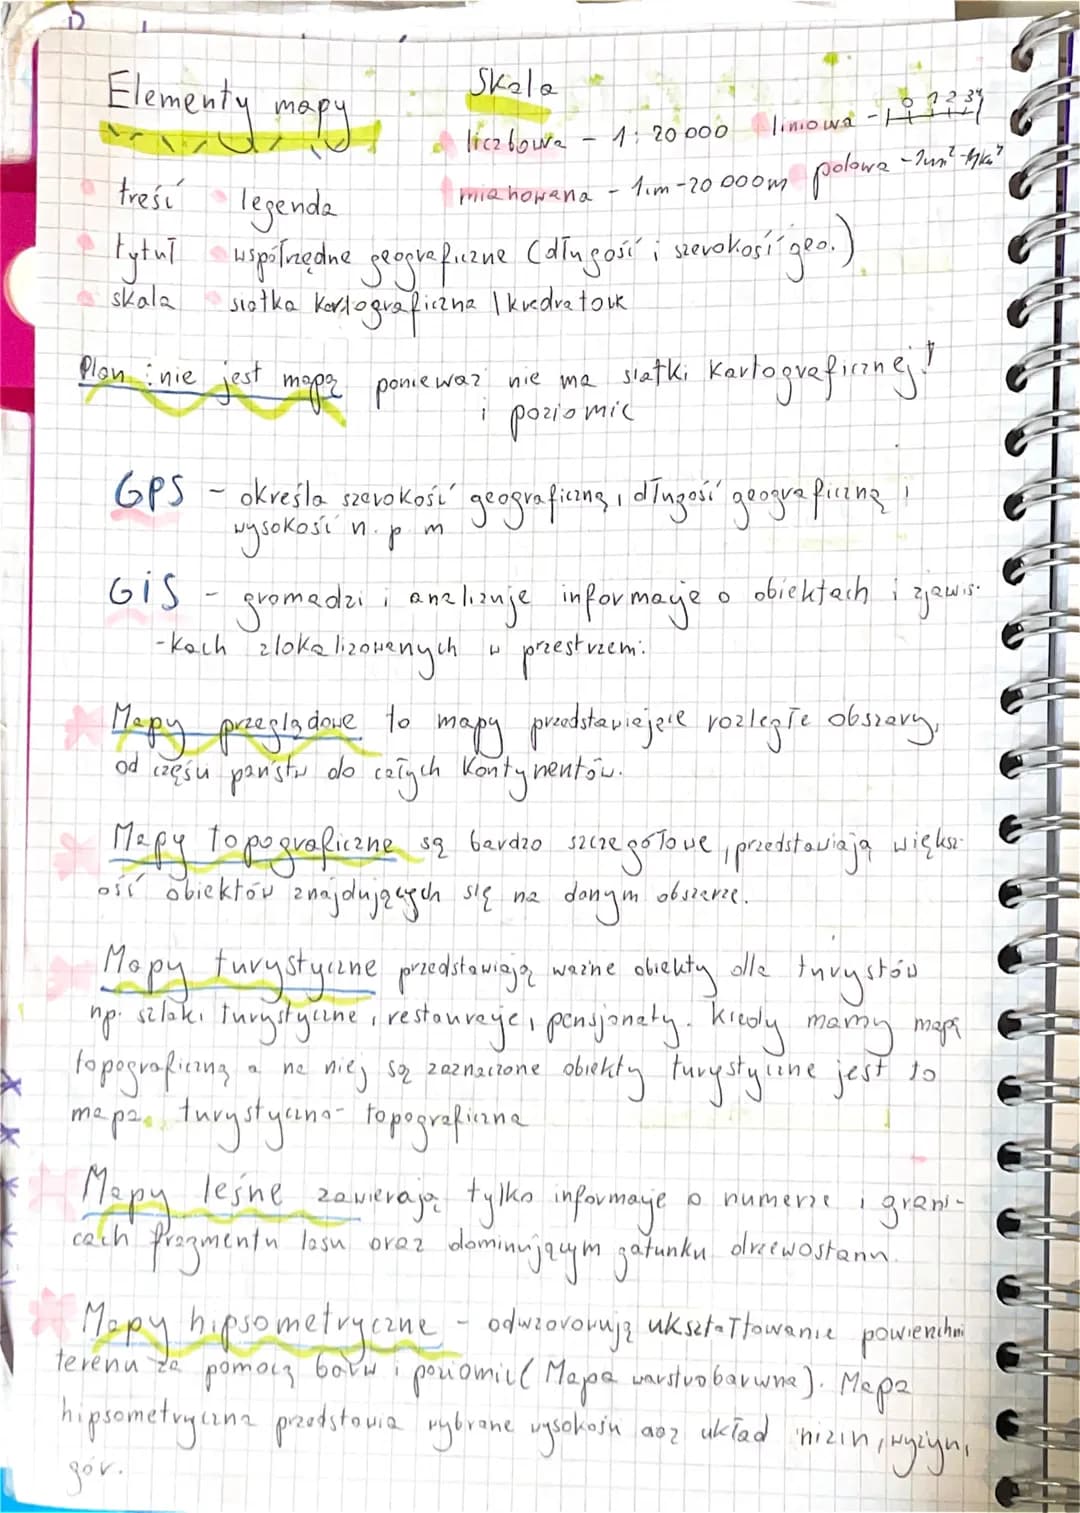 Elementy mapy
Skala
liczbowa - 1:20 000
liniowa - 0 1 2 3
mianowana - 1cm - 20 000m
polowa - 1cm² - 4km²
treść
legenda
tytuł
współrzędne geograficzne (długość i szerokość geo.)
skala
siatka kartograficzna / kwadratowa
Plan : nie jest mapą ponieważ nie ma siatki kartograficznej!
i poziomic
GPS - określa szerokość geograficzną, długość geograficzną i
wysokość n. p m
GiS - gromadzi i analizuje informacje o obiektach i zjawis-
-kach zlokalizowanych w przestrzeni.
Mapy przeglądowe to mapy przedstawiające rozległe obszary,
od części państw do całych kontynentów.
Mapy topograficzne są bardzo szczegółowe, przedstawiają większ-
ość obiektów znajdujących się na danym obszarze.
Mapy turystyczne przedstawiają ważne obiekty dla turystów
np. szlaki turystyczne, restauracje, pensjonaty. Kiedy mamy mapę
topograficzną a na niej są zaznaczone obiekty turystyczne jest to
mapa turystyczno-topograficzna
Mapy leśne zawierają tylko informacje o numerze i grani-
cach fragmentu lasu oraz dominującym gatunku drzewostanu.
Mapy hipsometryczne - odwzorowują ukształtowanie powierzchni
terenu za pomocą barw i poziomic (Mapa warstwobarwna). Mapa
hipsometryczna przedstawia wybrane wysokości oraz układ nizin, wyżyn i
gór.